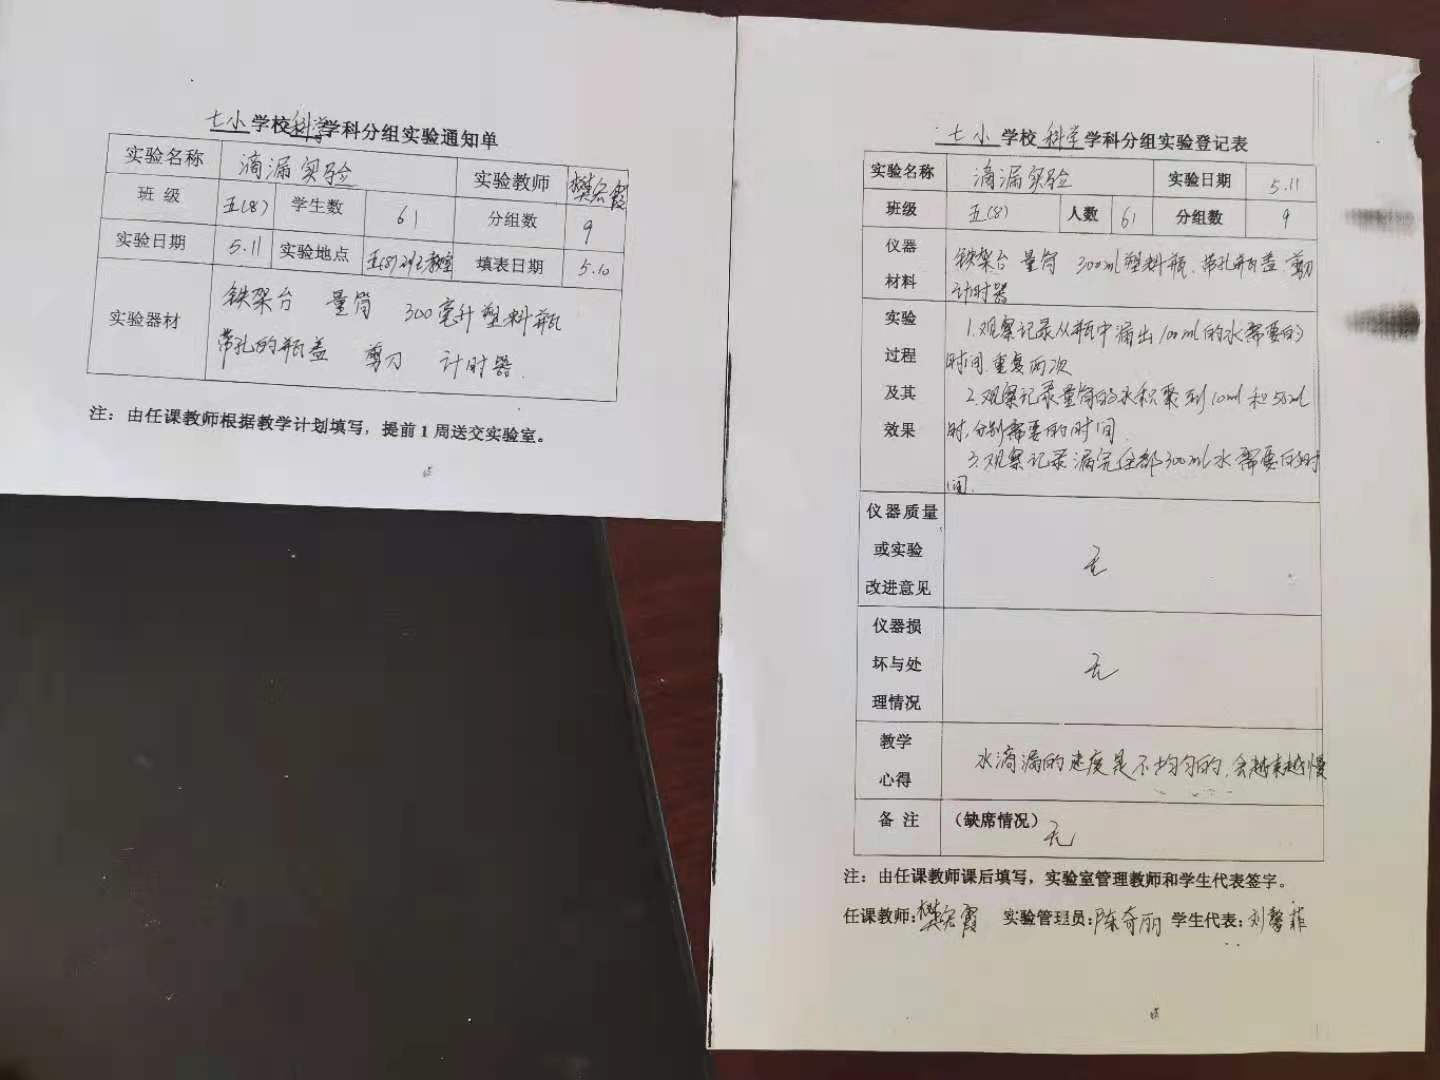 七小学校科学学科分组实验通知单
实验名称 滴漏实验 实验教师 樊宏霞
班 级 五(8) 学生数 61 分组数 9
实验日期 5.11 实验地点 五(8)班教室 填表日期 5.10
实验器材 铁架台 量筒 300毫升塑料瓶
带孔的瓶盖 剪刀 计时器.
注：由任课教师根据教学计划填写，提前1周送交实验室。
七小 学校 科学 学科分组实验登记表
实验名称 滴漏实验 实验日期 5.11
班级 五(8) 人数 61 分组数 9
仪器
材料
铁架台 量筒 300ml塑料瓶.带孔瓶盖.剪刀
计时器
实验
过程
及其
效果
1.观察记录从瓶中漏出100ml的水需要的
时间.重复两次
2.观察记录量筒的水积聚到10ml和50ml
时,分别需要的时间.
3.观察记录漏完全部300ml水需要的时
间.
仪器质量
或实验
改进意见
无
仪器损
坏与处
理情况
无
教学
心得
水滴漏的速度是不均匀的,会越来越慢
备 注 （缺席情况）无
注：由任课教师课后填写，实验室管理教师和学生代表签字。
任课教师：樊宏霞 实验管理员：陈奇丽 学生代表：刘馨菲